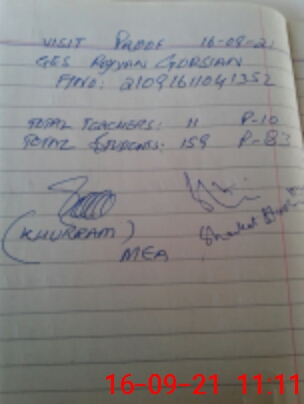 VISIT PROOF 16-09-21
GES
GORSIAN
FTNO: 21091611041352
TOTAL TEACHERS: 11 P-10
TOTAL STUDENTS: 159 P-83
(KHURRAM)
MEA
16-09-21 11:11